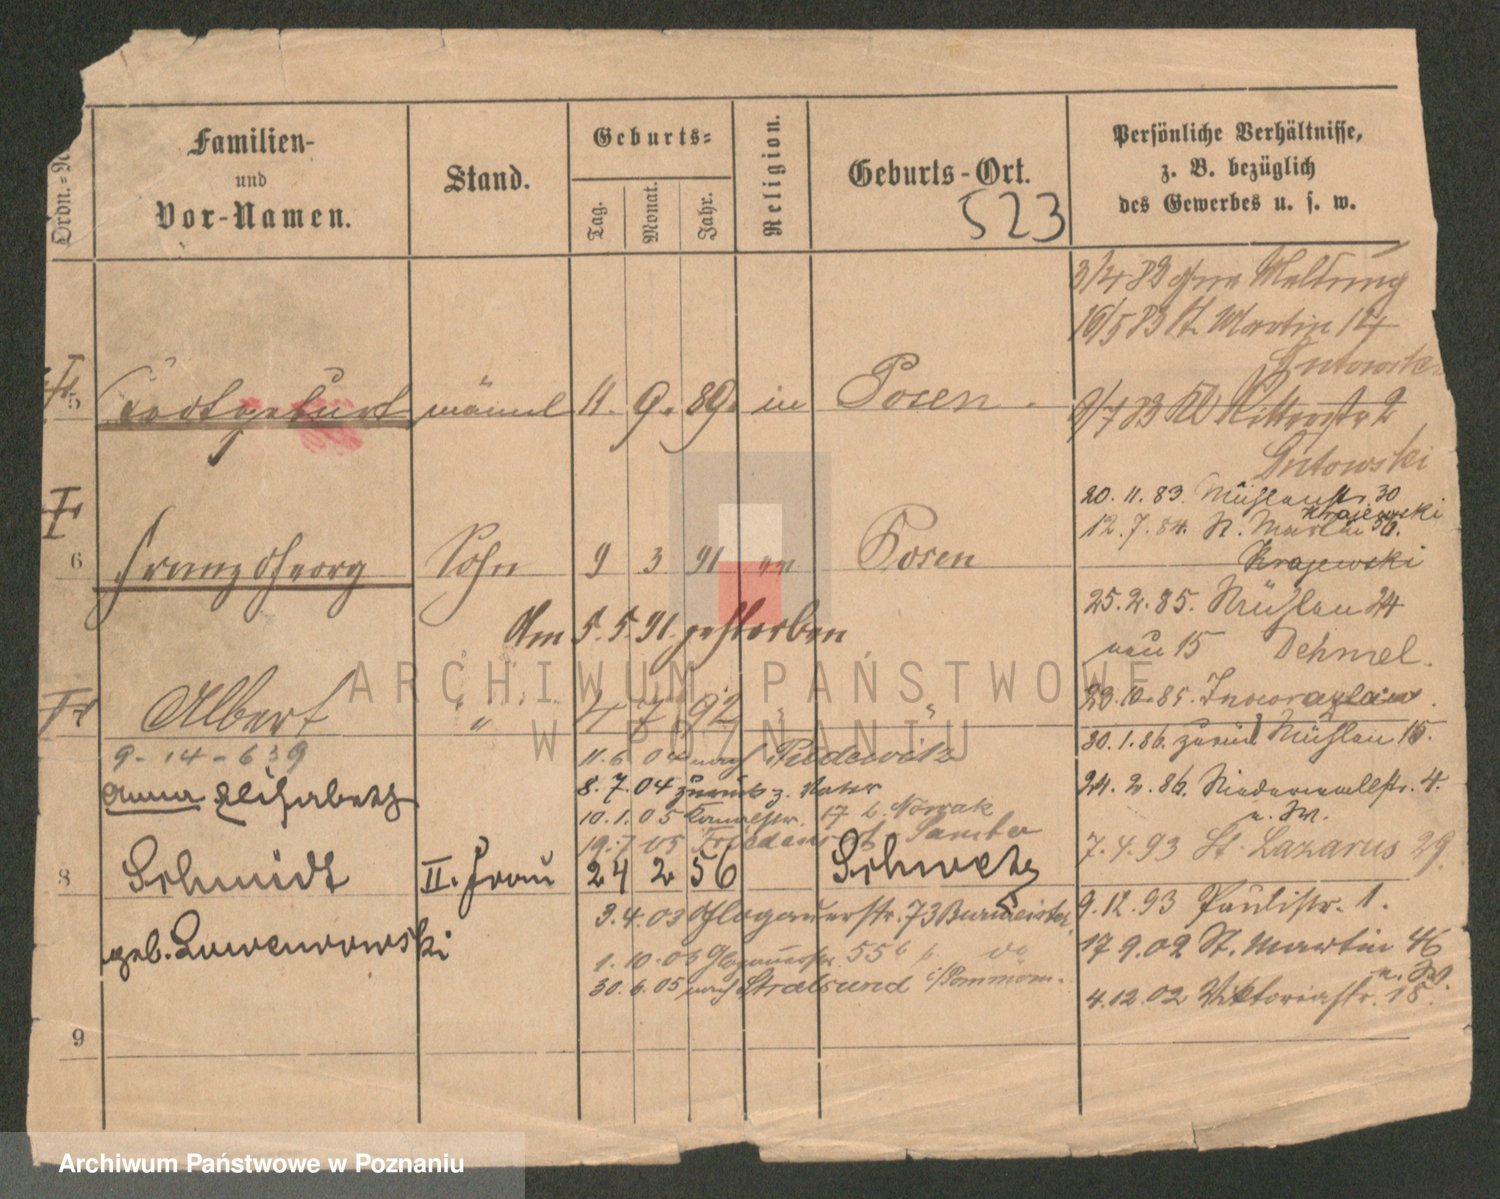 Ordn.-N
Familien-
und
Vor-Namen.
Stand.
Geburts-
Tag.
Monat.
Jahr.
Religion.
Geburts-Ort.
523
Persönliche Verhältnisse,
z. B. bezüglich
des Gewerbes u. s. w.
5 Todtgeburt männl 11. 9. 89. in Posen.
6 Franz Georg Sohn 9 3 91 Posen
Am 5. 5. 91. gestorben
Albert " 4 7 92 " "
9-14-639
11.6.04 nach Pudewitz
Anna Elisabeth
8.7.04 zurück z. Vater
10.1.05 Kanalstr. 17 b. Nowak
19.7.05
8 Schmidt II. Frau 24 2 56 Schwetz
geb. Lowenrowski
3.4.03 Glogauerstr. 73 Burmeister
1.10.03 Glogauerstr. 55 do
30.6.05 nach Stralsund i/Pommern.
9
3/4 82 ohne Meldung
16/5 83 St. Martin 14
Gutowski
9/7 83 Kl Ritterstr 2
Gutowski
20.11.83. Mühlenstr. 30
Krajewski
12.7.84. St. Martin 56.
Krajewski
25.2.85. Mühlen 24
neu 15 Dehmel.
23.10.85. Inowrazlaw.
30.1.86. zurück Mühlen 15.
24.2.86. Niederwallstr. 4.
u. Fr.
7.4.93 St. Lazarus 29.
9.12.93 Paulistr. 1.
17 9.02 St. Martin 46
4.12.02 Viktoriastr. 18.
ARCHIWUM PAŃSTWOWE
W POZNANIU
Archiwum Państwowe w Poznaniu